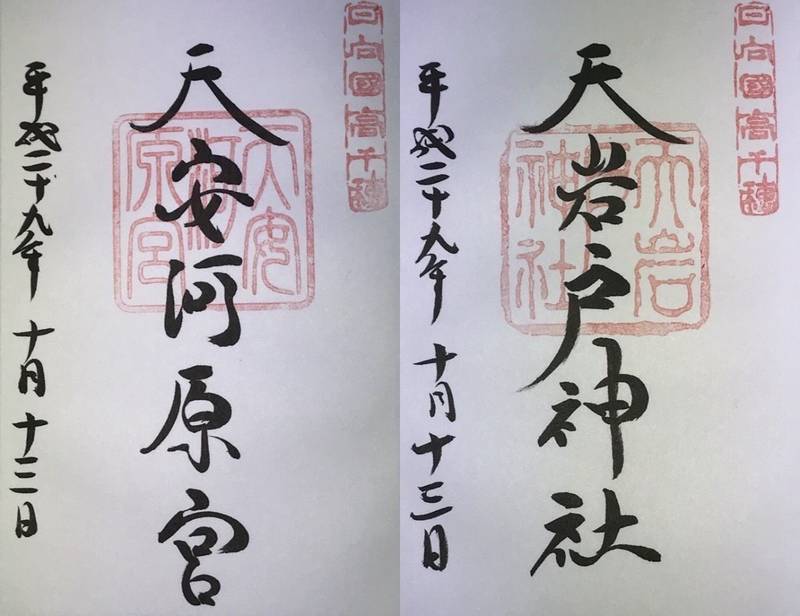 日向國高千穂
天安河原宮
天安河原宮
平成二十九年 十月 十三日
日向國高千穂
天岩戸神社
天岩戸神社
平成二十九年 十月十三日